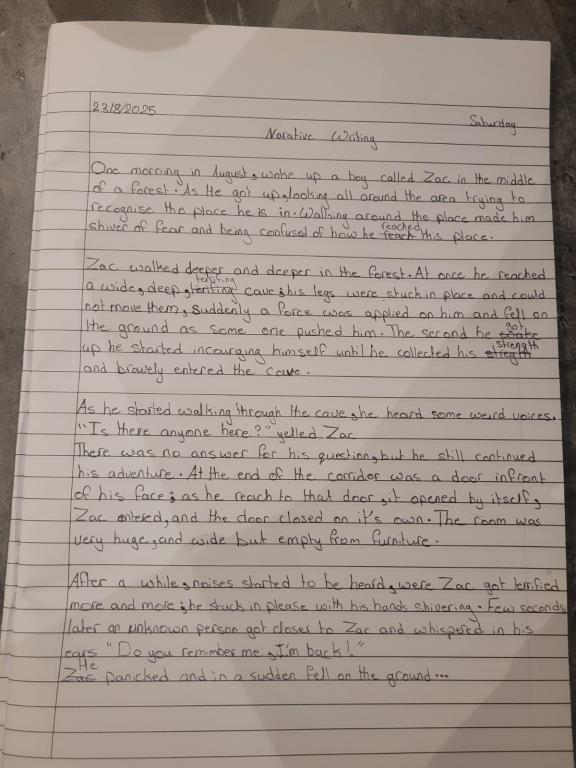 23/8/2025
Saturday
Narative Writing
One morning in August, woke up a boy called Zac in the middle
of a forest. As He got up, looking all around the area trying to
recognise the place he is in. Walking around the place made him
shiver of fear and being confused of how he reached this place.
Zac walked deeper and deeper in the forest. At once he reached
a wide, deep, cave; his legs were stuck in place and could
not move them, Suddenly a force was applied on him and fell on
the ground as some one pushed him. The second he got
up he started incourging himself until he collected his strength
and bravely entered the cave.
As he started walking through the cave, he heard some weird voices.
"Is there anyone here?" yelled Zac
There was no answer for his question, but he still continued
his adventure. At the end of the corridor was a door infront
of his face; as he reach to that door, it opened by itself,
Zac entered, and the door closed on it's own. The room was
very huge, and wide but empty from furniture.
After a while, noises started to be heard, were Zac got terrified
more and more; he stuck in please with his hands shivering. Few seconds
later an unknown person got closer to Zac and whispered in his
ears "Do you remimber me, I'm back!"
He panicked and in a sudden fell on the ground...